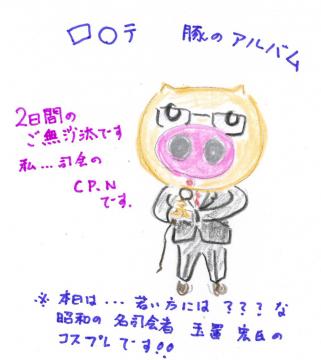 ロ○テ 豚のアルバム
2日間の
ご無沙汰です
私...司会の
C P. N
です.
※ 本日は... 若い方には ? ? ? な
昭和の 名司会者 玉置 宏氏の
コスプレです!!